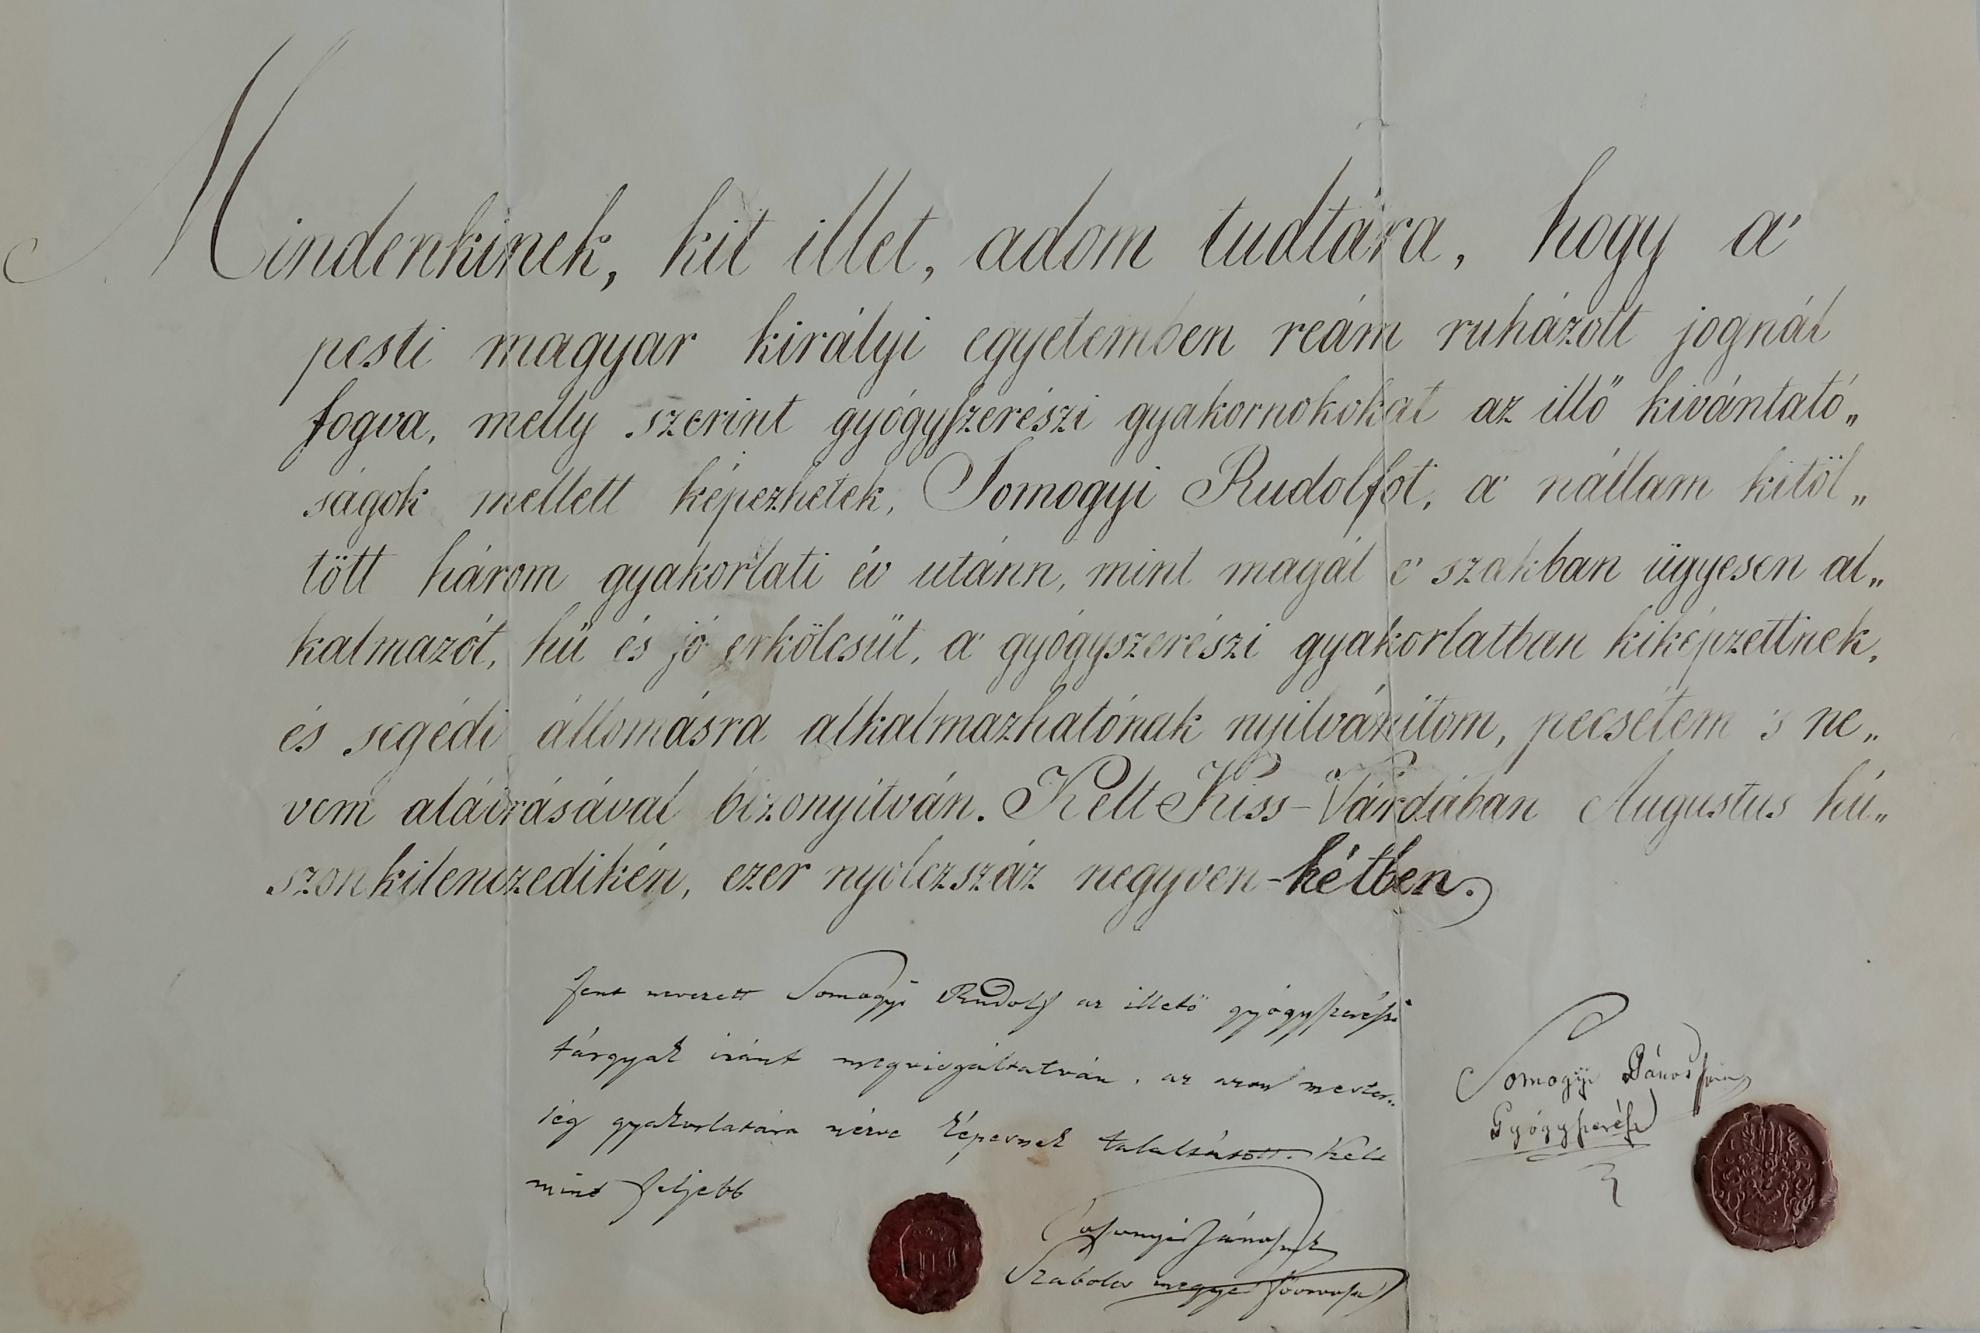 Mindenkinek, kit illet, adom tudtára, hogy a'
pesti magyar királyi egyetemben reám ruházott jognál
fogva, melly szerint gyógyszerészi gyakornokokat az illő kivántató„
ságok mellett képezhetek, Somogyi Rudolfot, a' nállam kitöl„
tött három gyakorlati év utánn, mint magát e' szakban ügyesen al„
kalmazót, hű és jó erkölcsüt, a' gyógyszerészi gyakorlatban kiképzettnek,
és segédi állomásra alkalmazhatónak nyilvánitom, pecsétem 's ne„
vem aláirásával bizonyitván. Kelt Kiss-Várdában Augustus hú„
szonkilenczedikén, ezer nyolczszáz negyven-kétben.
fent nevezett Somogyi Rudolf az illető gyógyszerészi
tárgyak iránt megvizsgáltatván, az azon mester„
ség gyakorlatára nézve képesnek találtatott. Kelt
mint feljebb
Somogyi János
Gyógyszerész
János
Szabolcs megye főorvosa